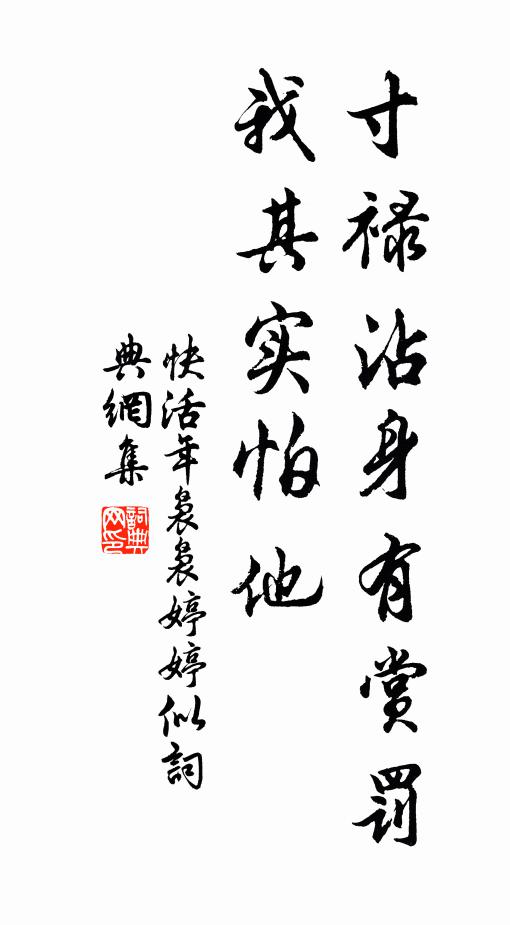 寸禄沾身有赏罚
我其实怕他
快活年袅袅婷婷似詞
典網集
詞典
网印